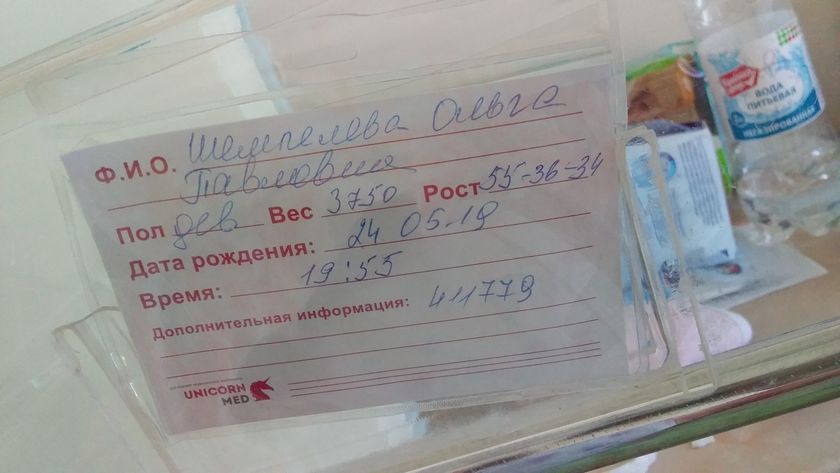 Ф.И.О. Шемпелева Ольга
Павловна
Пол дев Вес 3750 Рост 55-36-34
Дата рождения: 24 05.19
Время: 19:55
Дополнительная информация: 411779
UNICORN
MED
ВОДА
ПИТЬЕВАЯ
НЕГАЗИРОВАННАЯ